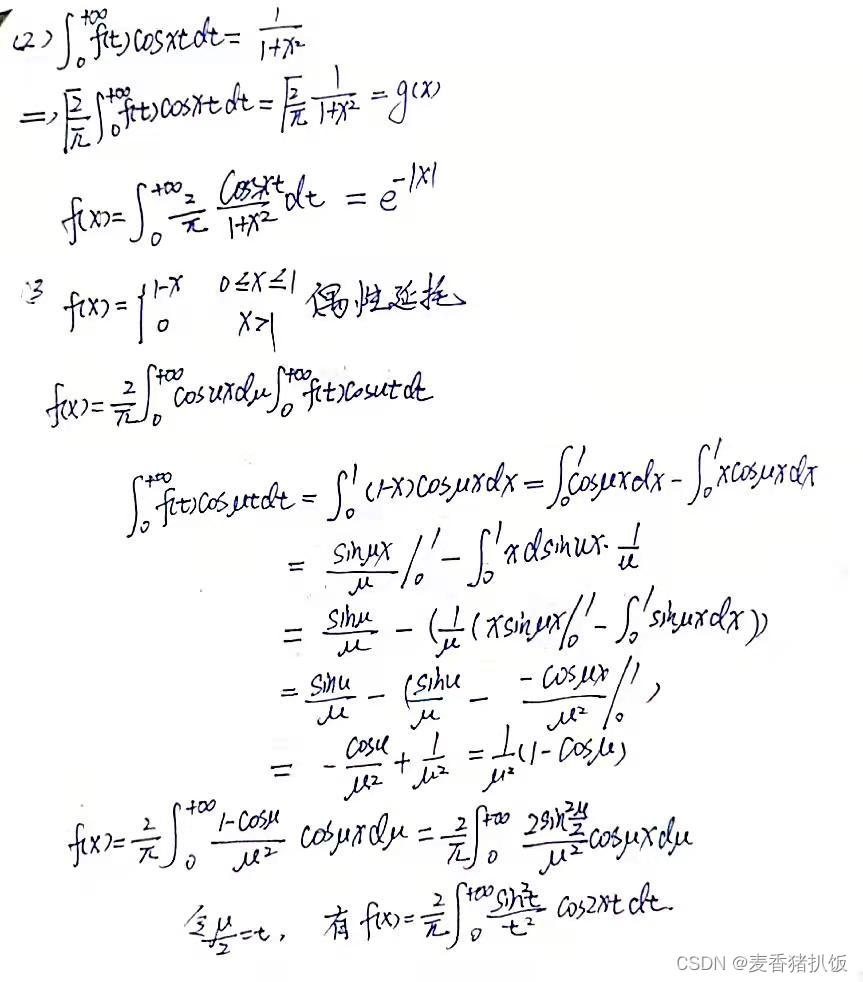 (2) ∫₀^{+∞} f(t)cosxt dt = 1/(1+x²)
⇒ √(2/π) ∫₀^{+∞} f(t)cosxt dt = √(2/π) 1/(1+x²) = g(x)
f(x) = ∫₀^{+∞} 2/π cosxt/(1+x²) dt = e^{-|x|}
3 f(x) = { 1-x 0≤x≤1 偶性延拓
0 x>1
f(x) = 2/π ∫₀^{+∞} cosux dμ ∫₀^{+∞} f(t)cosut dt
∫₀^{+∞} f(t)cosμt dt = ∫₀¹ (1-x)cosμx dx = ∫₀¹ cosμx dx - ∫₀¹ xcosμx dx
= sinμx/μ |₀¹ - ∫₀¹ x dsinux · 1/u
= sinμ/μ - (1/μ (xsinμx|₀¹ - ∫₀¹ sinμx dx))
= sinu/μ - (sinu/μ - -cosμx/μ² |₀¹)
= - cosu/μ² + 1/μ² = 1/μ² (1-cosμ)
f(x) = 2/π ∫₀^{+∞} (1-cosμ)/μ² cosμx dμ = 2/π ∫₀^{+∞} 2sin²(μ/2)/μ² cosμx dμ
令 μ/2 = t, 有 f(x) = 2/π ∫₀^{+∞} sin²t/t² cos2xt dt.
CSDN @麦香猪扒饭